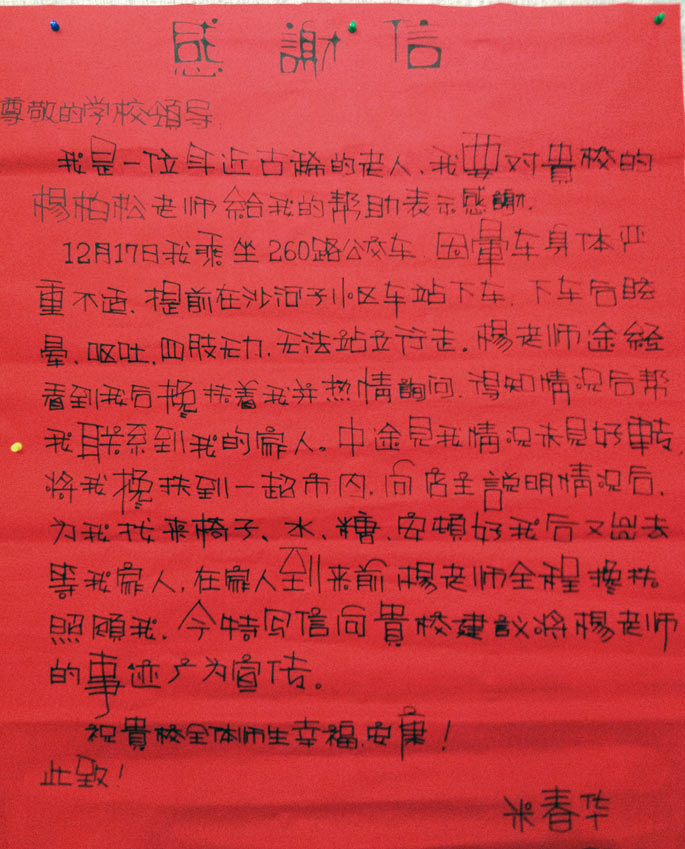 感謝信
尊敬的学校領导.
我是一位年近古稀的老人、我要对貴校的
楊柏松老师給我的帮助表示感謝.
12月17日我乘坐260路公交车.因暈车身体严
重不适.提前在沙河子小区车站下车.下车后眩
暈、呕吐、四肢无力.无法站立行走。楊老师途経
看到我后攙扶着我并热情詢问.得知情况后帮
我联系到我的家人。中途見我情况未見好転.
将我攙扶到一超市内.向店主説明情况后.
为我找来椅子、水、糖、安頓好我后又出去
等我家人,在家人到来前楊老师全程攙扶
照顧我.今特写信向貴校建議将楊老师
的事迹广为宣传。
祝貴校全体师生幸福.安康!
此致!
米春华